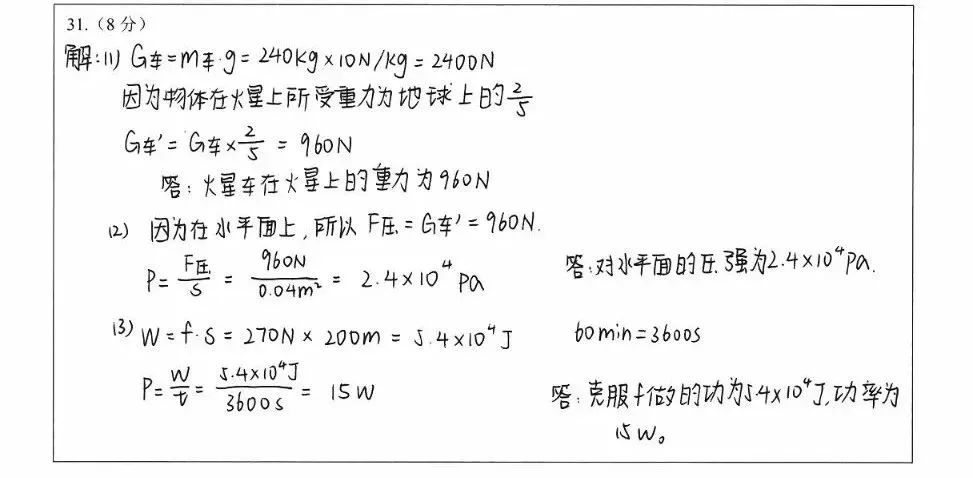 31.（8 分）
解:(1) G车=m车·g=240kg×10N/kg=2400N
因为物体在火星上所受重力为地球上的2/5
G车'=G车×2/5=960N
答:火星车在火星上的重力为960N
(2) 因为在水平面上,所以F压=G车'=960N.
P=F压/S=960N/0.04m²=2.4×10⁴Pa 答:对水平面的压强为2.4×10⁴Pa.
(3) W=f·S=270N×200m=5.4×10⁴J 60min=3600s
P=W/t=5.4×10⁴J/3600s=15W 答:克服f做的功为5.4×10⁴J,功率为
15W。